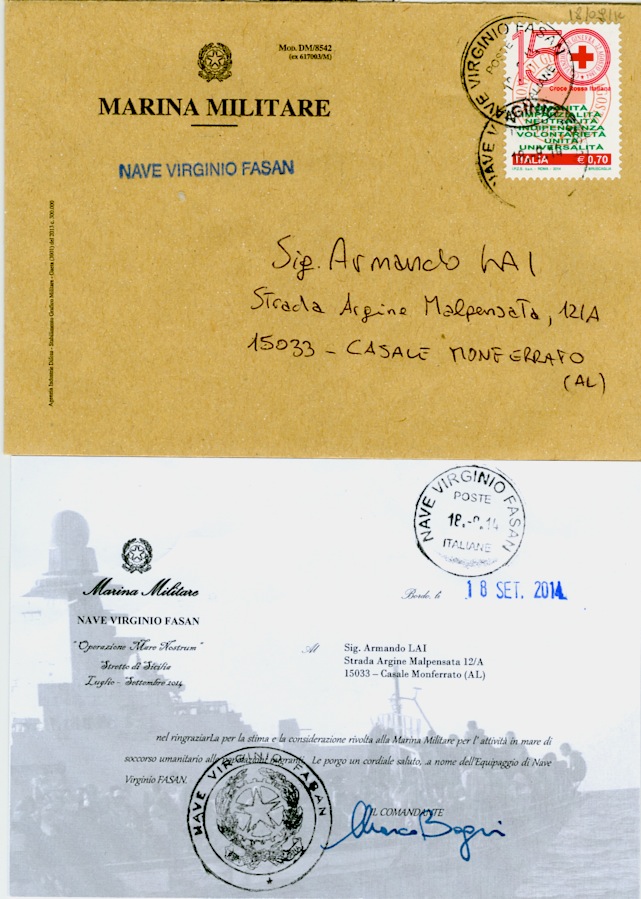 18/09/14
Mod. DM/8542
(ex 617003/M)
MARINA MILITARE
NAVE VIRGINIO FASAN
NAVE VIRGINIO FASAN
POSTE
ITALIANE
150
Croce Rossa Italiana
UMANITÀ
IMPARZIALITÀ
NEUTRALITÀ
INDIPENDENZA
VOLONTARIETÀ
UNITÀ
UNIVERSALITÀ
ITALIA € 0,70
Sig. Armando LAI
Strada Argine Malpensata, 12/A
15033 - CASALE MONFERRATO
(AL)
NAVE VIRGINIO FASAN
POSTE
ITALIANE
Marina Militare
NAVE VIRGINIO FASAN
"Operazione Mare Nostrum"
Stretto di Sicilia
Luglio - Settembre 2014
Bordo, li 18 SET. 2014
Al Sig. Armando LAI
Strada Argine Malpensata 12/A
15033 – Casale Monferrato (AL)
nel ringraziarLa per la stima e la considerazione rivolta alla Marina Militare per l' attività in mare di
soccorso umanitario alle popolazioni migranti. Le porgo un cordiale saluto, a nome dell'Equipaggio di Nave
Virginio FASAN.
IL COMANDANTE
NAVE VIRGINIO FASAN